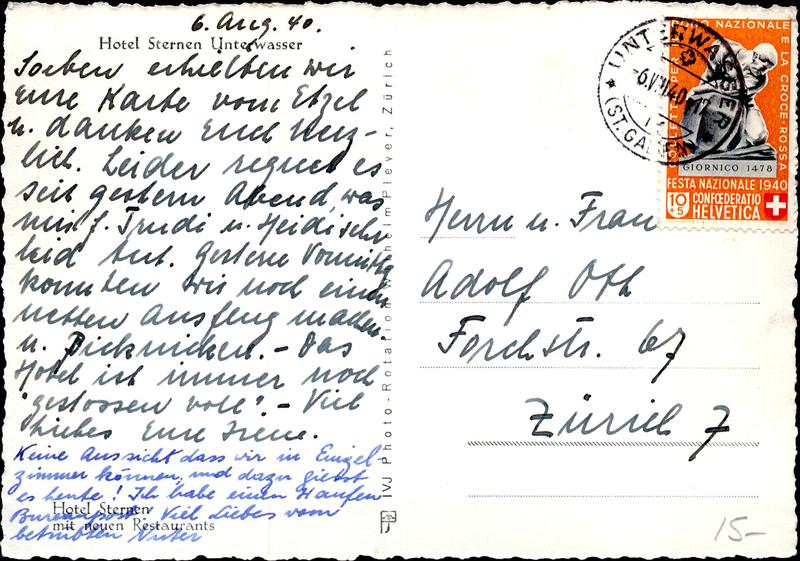 6. Aug. 40.
Hotel Sternen Unterwasser
Soeben erhielten wir
Eure Karte vom Etzel
u. danken Euch herz-
lich. Leider regnet es
seit gestern Abend, was
mir f. Trudi u. Heidi sehr
leid tut. Gestern Vormittag
konnten wir noch einen
netten Ausflug machen
u. Picknicken. - Das
Hotel ist immer noch
"gestossen voll". - Viel
Liebes Eure Irene.
Keine Aussicht dass wir in Einzel-
zimmer können, und dazu giesst
es heute! Ich habe einen Haufen
Bureaupost. Viel Liebes vom
betrübten
Hotel Sternen
mit neuen Restaurants
IVJ Photo-Rotation Wilhelm Pleyer, Zürich
UNTERWASSER
-6.VIII.40
(ST. GALLEN)
NAZIONALE E LA CROCE-ROSSA
GIORNICO 1478
FESTA NAZIONALE 1940
10+5 CONFŒDERATIO
HELVETICA
Herrn u. Frau
Adolf Oth
Forchstr. 67
Zürich 7
15-